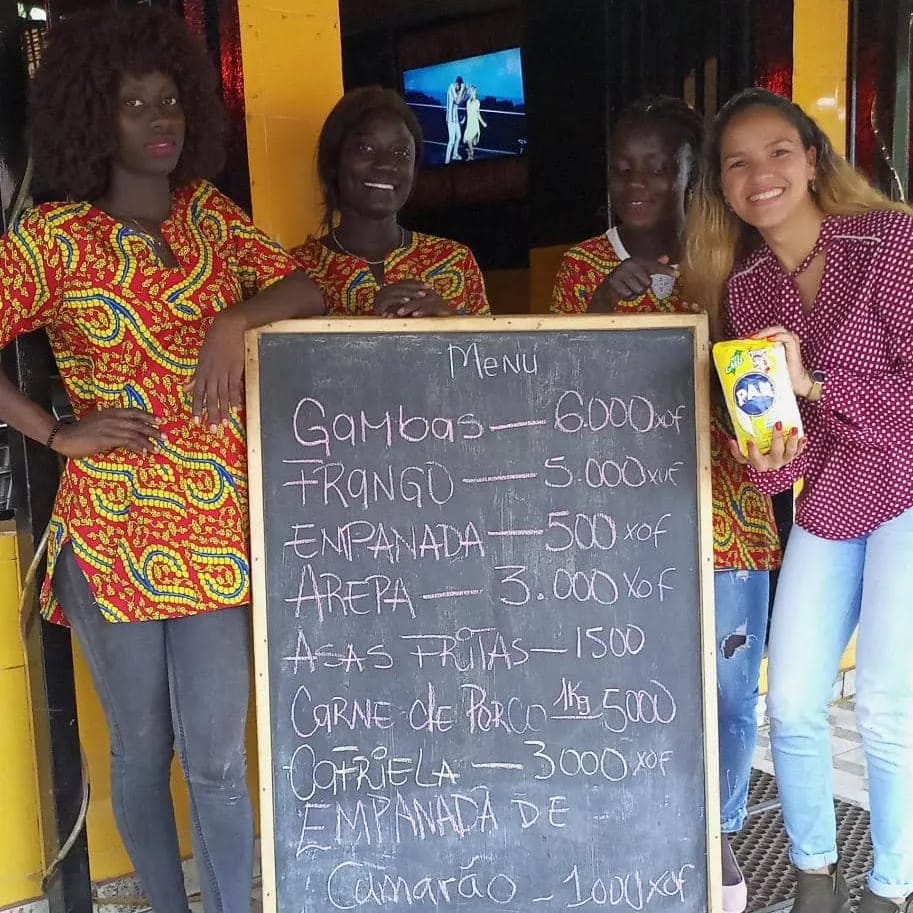 Menu
Gambas — 6.000 xof
FRANGO — 5.000 xof
EMPANADA — 500 xof
AREPA — 3.000 xof
ASAS FRITAS — 1500
CARNE de PORCO 1Kg 5000
COFRIELA — 3000 xof
EMPANADA DE
Camarão - 1000 xof
PAN